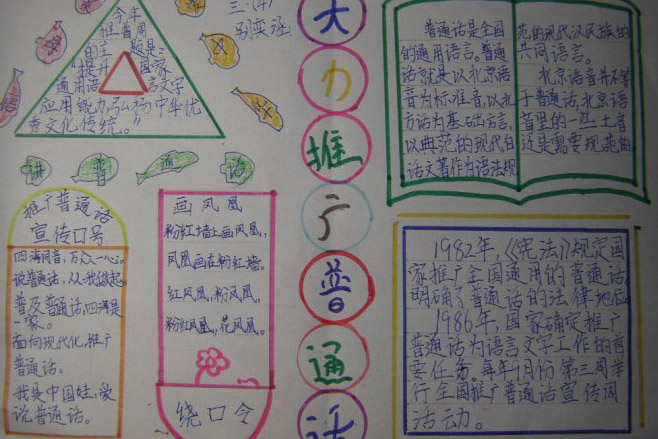 今年
推普周
的主题是:
"提升国家
通用语言文字
应用能力,弘扬中华优
秀文化传统。"
三.(4)
讲普通话
推广普通话
宣传口号
四海同音,万众一心。
说普通话,从我做起。
普及普通话,四海是
一家。
面向现代化,推广
普通话。
我是中国娃,爱
说普通话。
画凤凰
粉红墙上画凤凰,
凤凰画在粉红墙。
红凤凰,粉凤凰,
粉红凤凰,花凤凰。
绕口令
大力推广普通话
普通话是全国
的通用语言。普通
话就是以北京语
音为标准音,以北
方话为基础方言,
以典范的现代白
话文著作为语法规
范的现代汉民族的
共同语言。
北京语音并不等
于普通话,北京语
音里的一些土音
还是需要规范的
1982年,《宪法》规定国
家推广全国通用的普通话,
明确了普通话的法律地位
1986年,国家确定推广
普通话为语言文字工作的首
要任务。每年9月份第三周举
行全国推广普通话宣传周
活动。